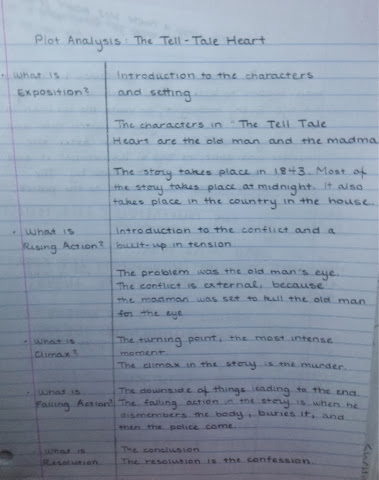 Plot Analysis: The Tell-Tale Heart
• What is Exposition?
Introduction to the characters
and setting.
The characters in "The Tell Tale
Heart are the old man and the madma
The story takes place in 1843. Most of
the story takes place at midnight. It also
takes place in the country in the house.
• What is Rising Action?
Introduction to the conflict and a
built-up in tension
The problem was the old man's eye.
The conflict is external, because
the madman was set to kill the old man
for the eye
• What is Climax?
The turning point, the most intense
moment
The climax in the story is the murder.
• What is Falling Action?
The downside of things leading to the end.
The falling action in the story is when he
dismembers the body, buries it, and
then the police come.
What is Resolution
The conclusion
The resolution is the confession.